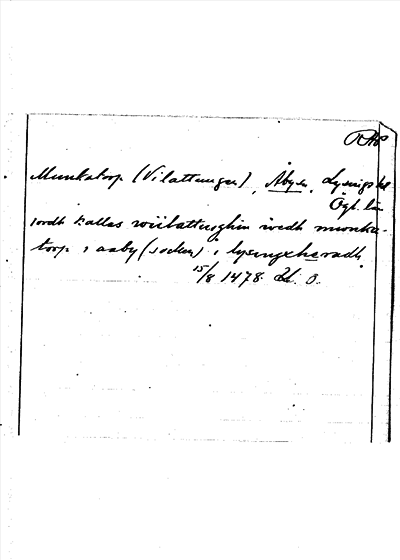 RAP
Munkatorp (Vilattungen), Åby sn, Lysings hd
Ögl. län
iordh kallas wiilattunghin widh munka-
torp i aaby (socken) i lysingxheradh
15/8 1478. Or. O.